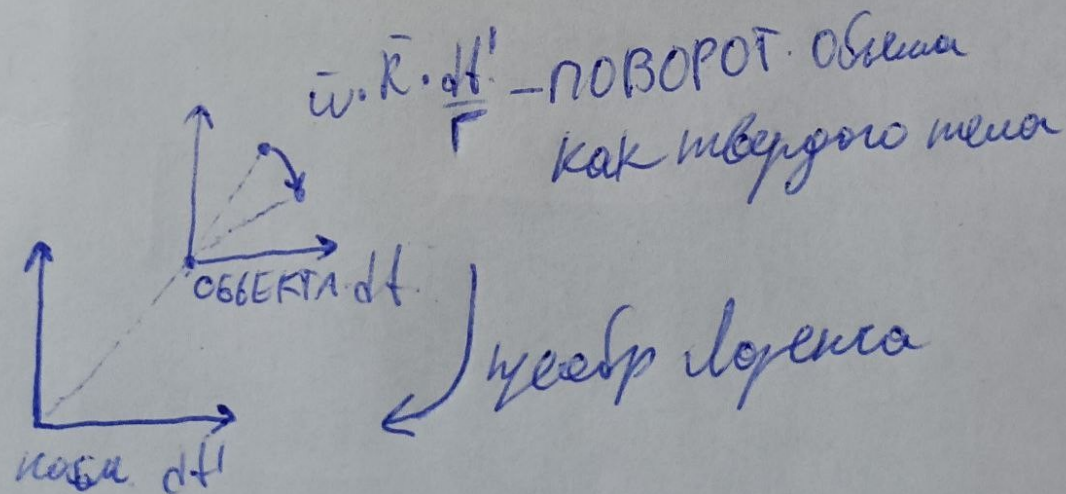 ω̄·R̄·dt'/Γ – ПОВОРОТ. Объема
как твердого тела
ОБЪЕКТА dt
преобр Лоренса
набл. dt'